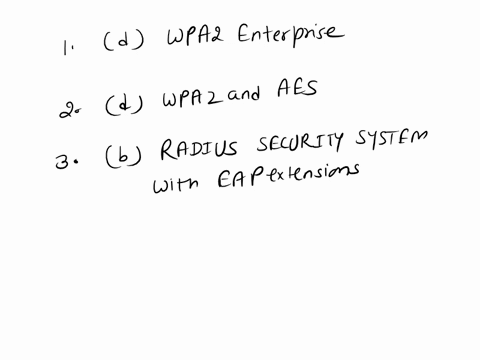 1. (d) WPA2 Enterprise
2. (d) WPA2 and AES
3. (b) RADIUS SECURITY SYSTEM
with EAP extensions